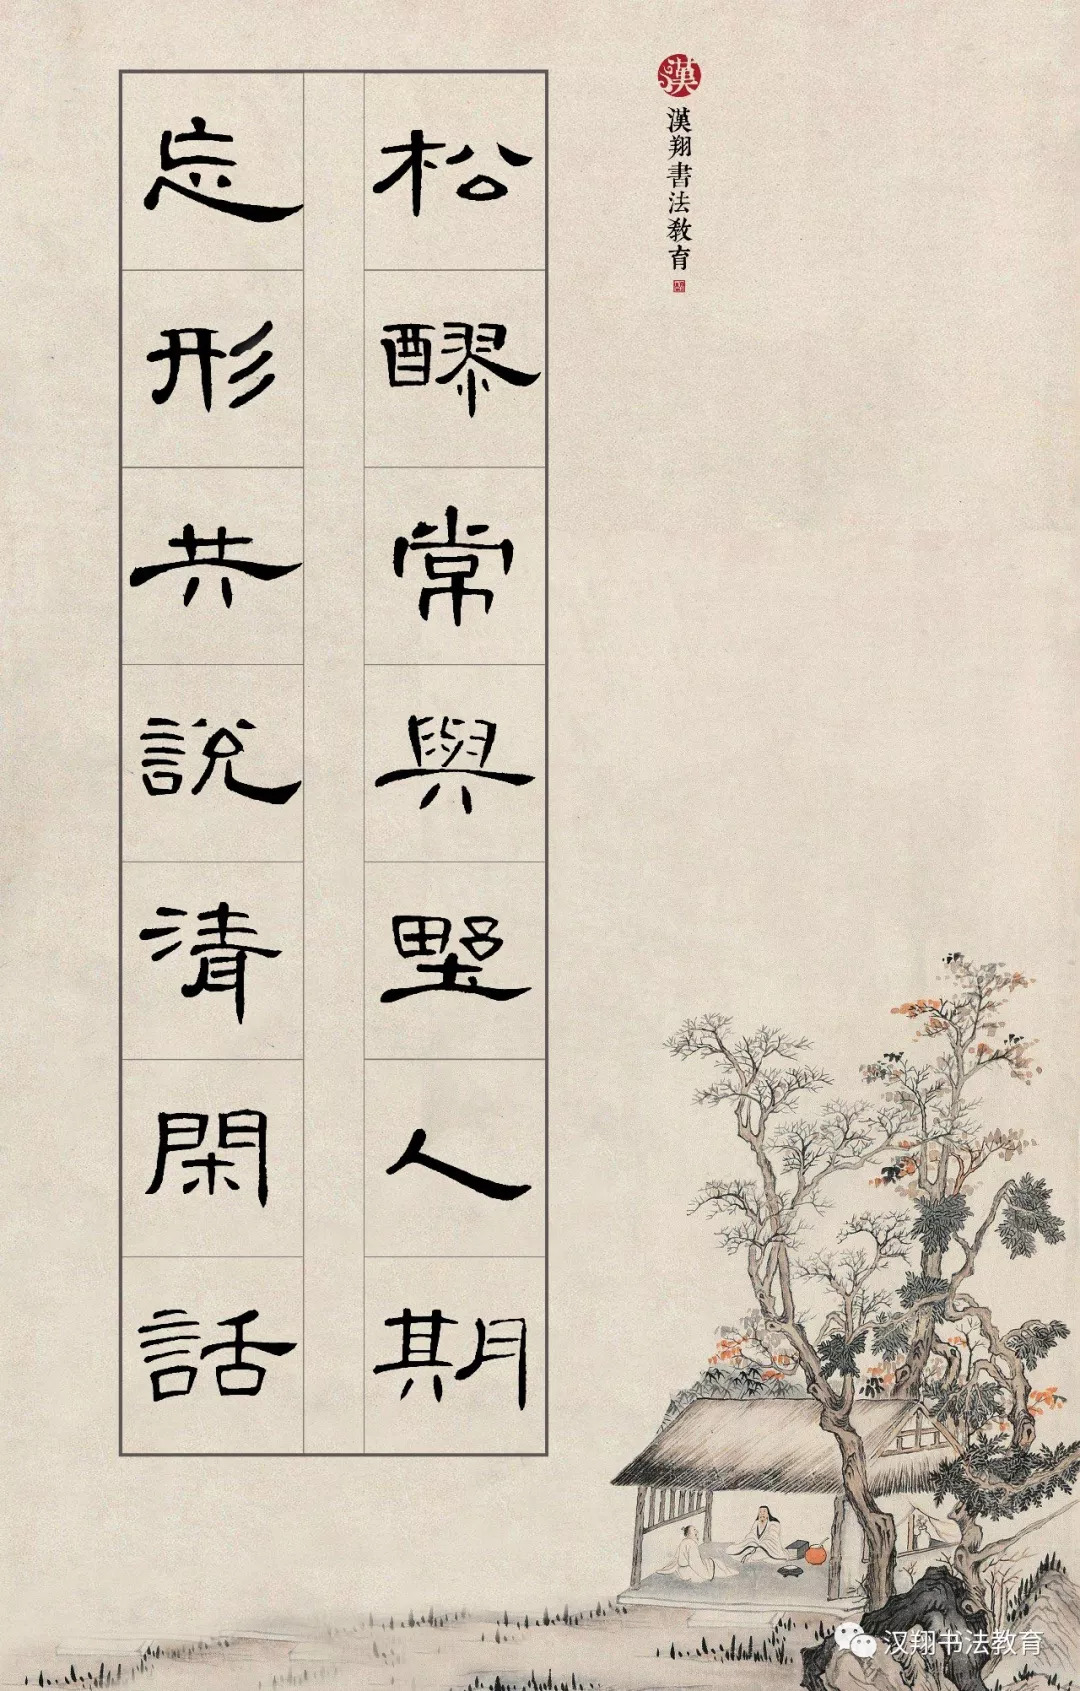 松醪常與野人期
忘形共說清閑話
漢
漢翔書法教育
汉翔书法教育